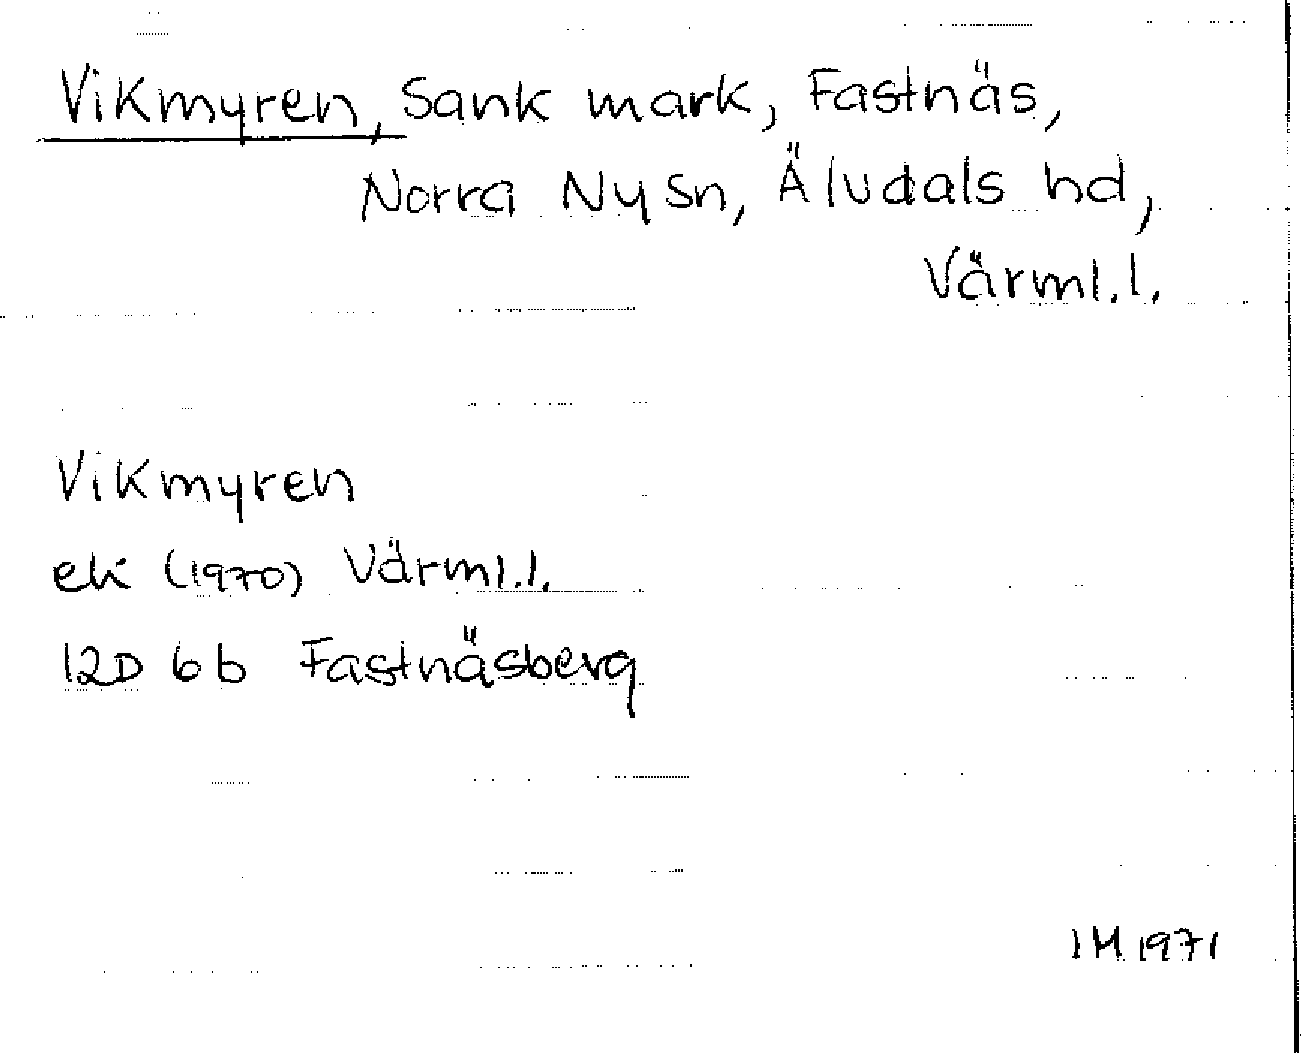 Vikmyren, Sank mark, Fastnäs,
Norra Ny Sn, Äludals hd,
Värml.l.
Vikmyren
ek (1970) Värml.l.
12D 6b Fastnäsberg
IM 1971